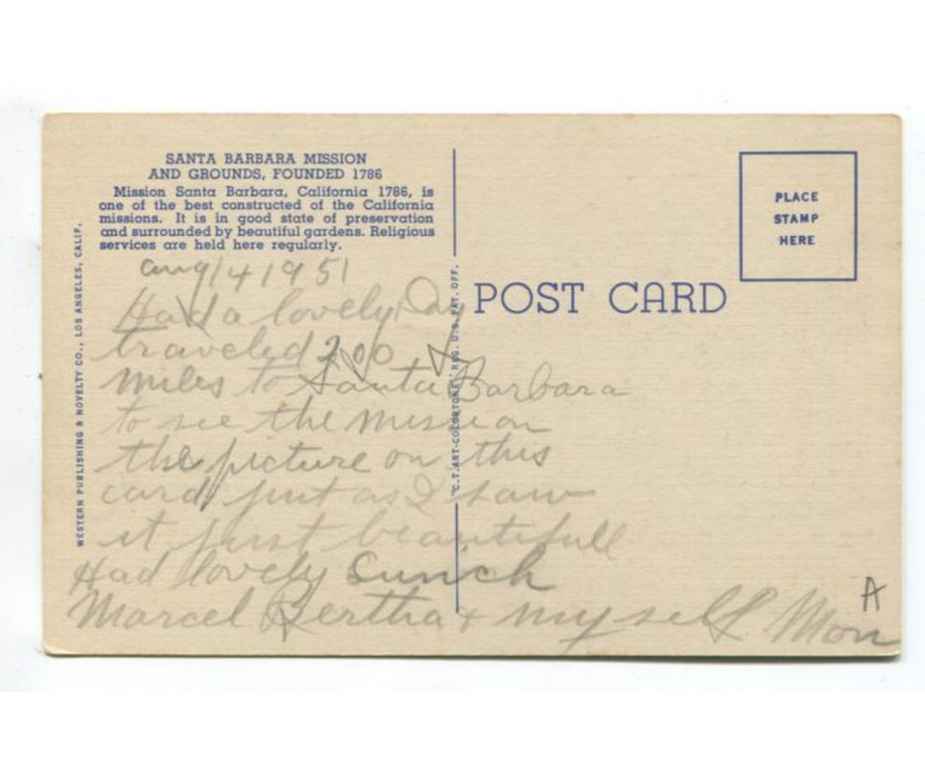 SANTA BARBARA MISSION
AND GROUNDS, FOUNDED 1786
Mission Santa Barbara, California 1786, is
one of the best constructed of the California
missions. It is in good state of preservation
and surrounded by beautiful gardens. Religious
services are held here regularly.
WESTERN PUBLISHING & NOVELTY CO., LOS ANGELES, CALIF.
C.T. ART-COLORTONE REG. U.S. PAT. OFF.
POST CARD
PLACE
STAMP
HERE
aug 14 1951
Had a lovely Day
traveled 200
miles to Santa Barbara
to see the mission
the picture on this
card just as I saw
it just beautifull
Had lovely Lunch
Marcel Bertha + myself. Mom
A